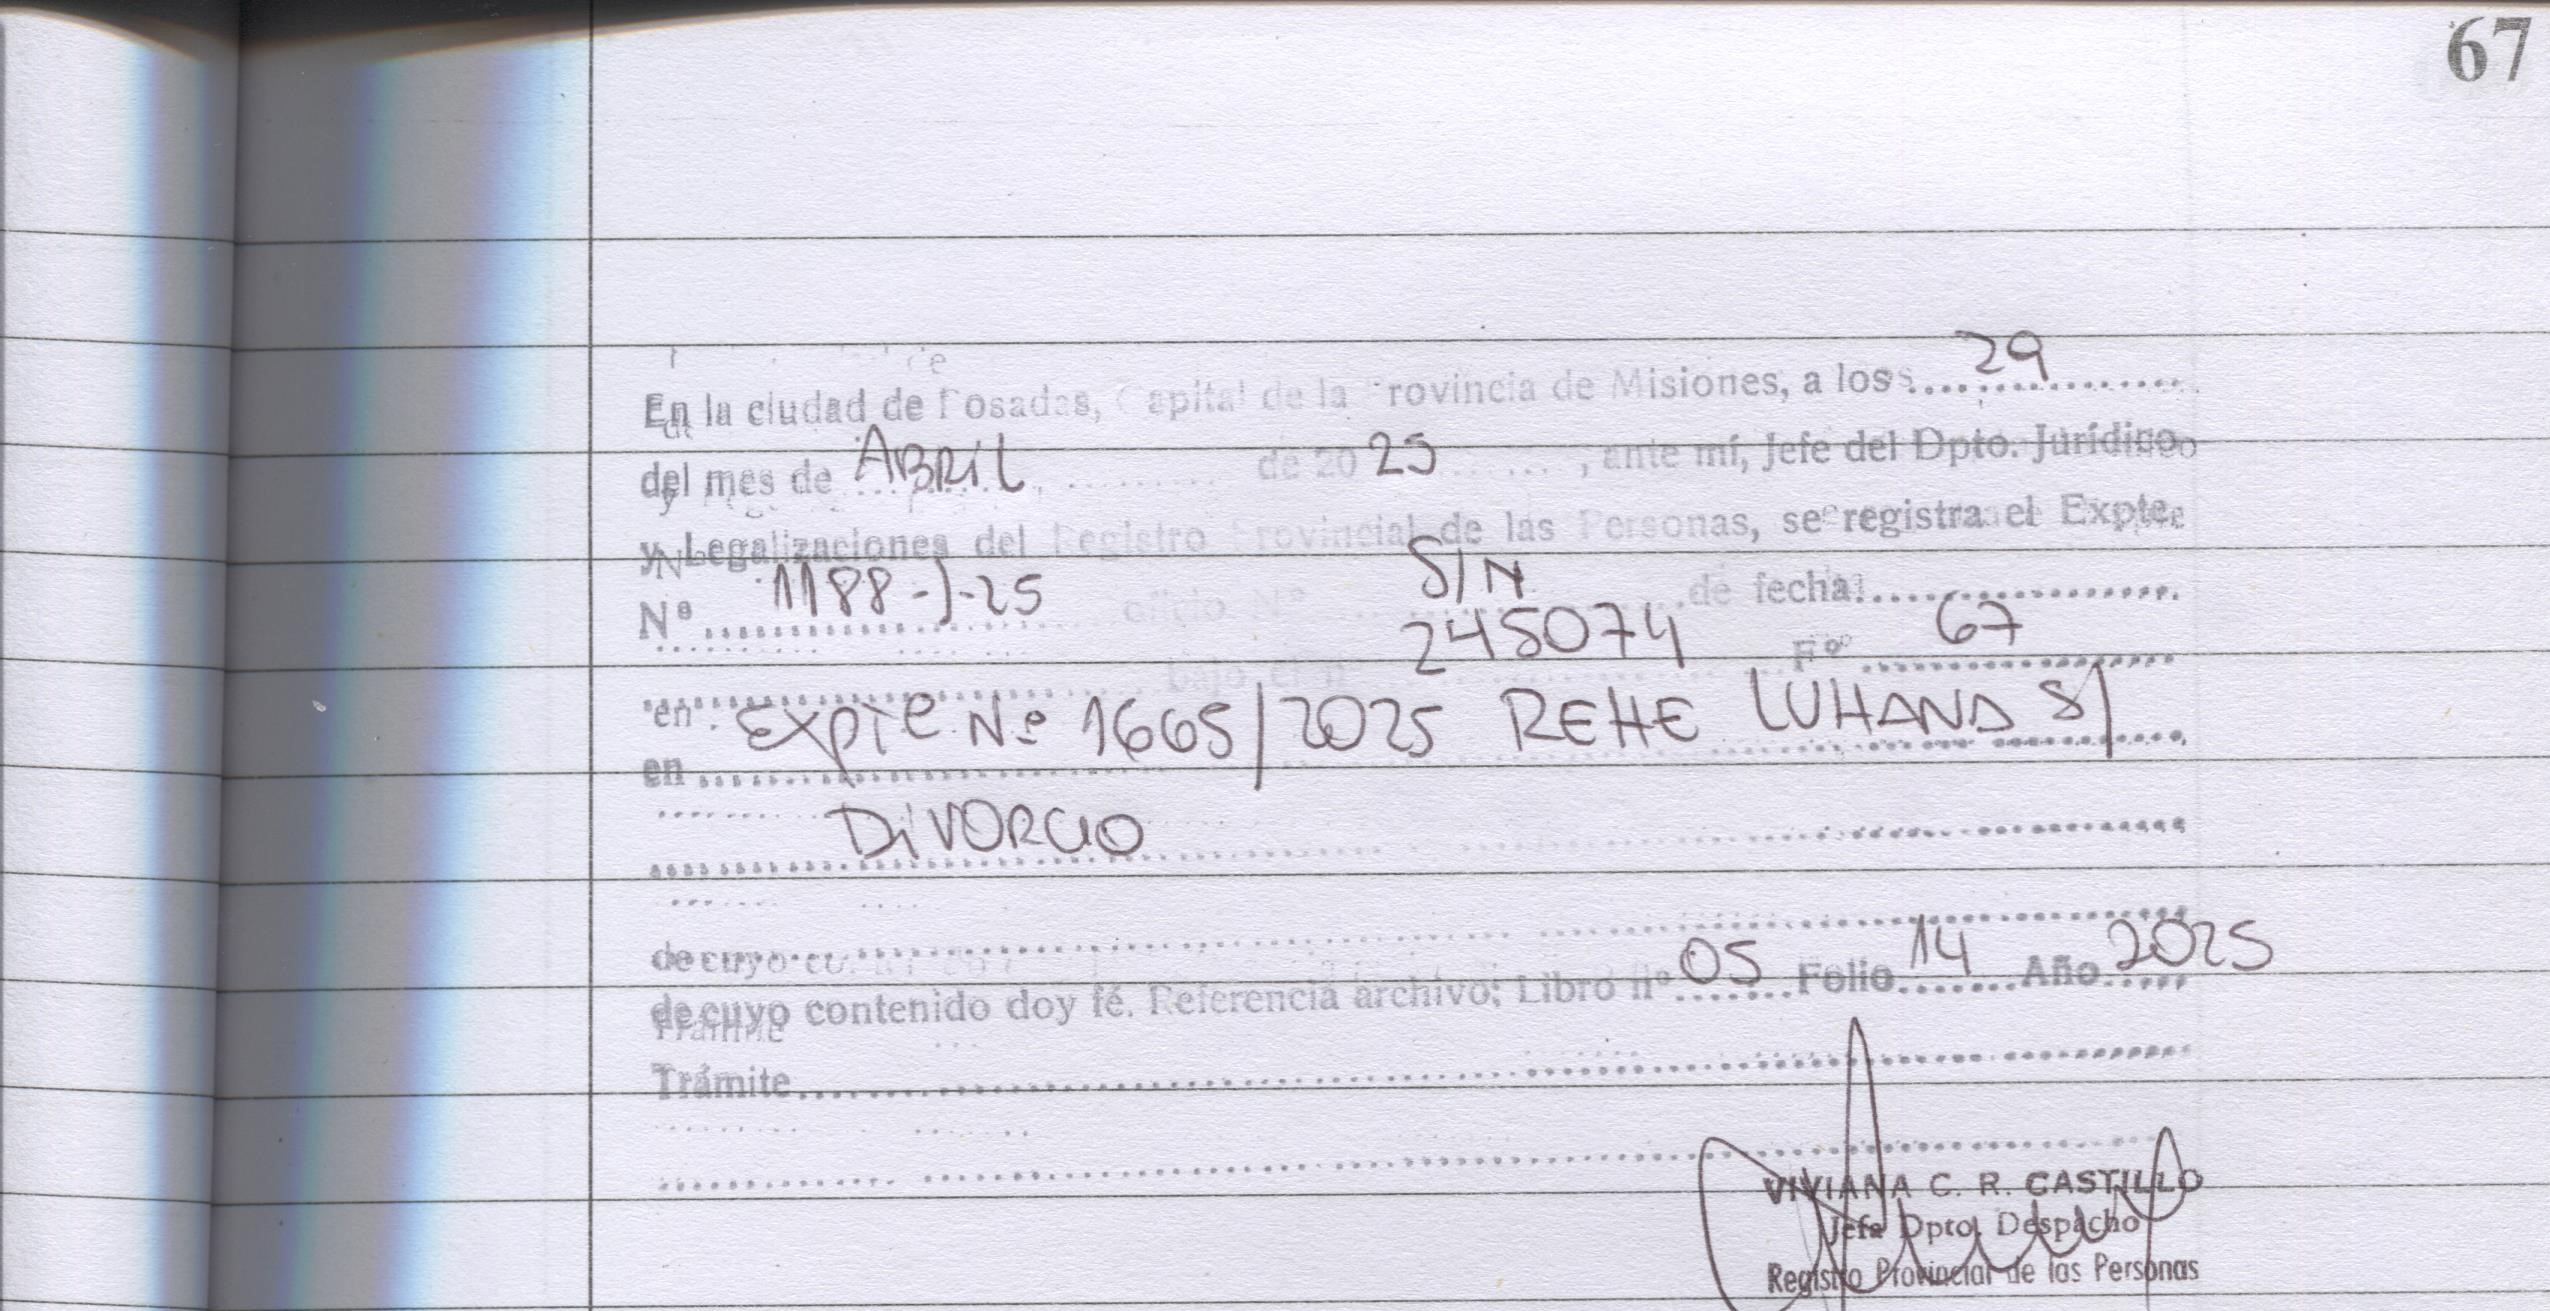 67
En la ciudad de Posadas, Capital de la Provincia de Misiones, a los 29
del mes de ABRIL de 20 25, ante mí, Jefe del Dpto. Jurídico
y Legalizaciones del Registro Provincial de las Personas, se registra el Expte.
Nº 1188-J-25 oficio Nº S/N de fecha
bajo el nº 245074 Fº 67
en Expte Nº 1665/2025 REHE LUHANA S/
DIVORCIO
de cuyo contenido doy fé. Referencia archivo; Libro nº 05 Folio 14 Año 2025
Trámite
VIVIANA C. R. CASTILLO
Jefa Dpto. Despacho
Registro Provincial de las Personas